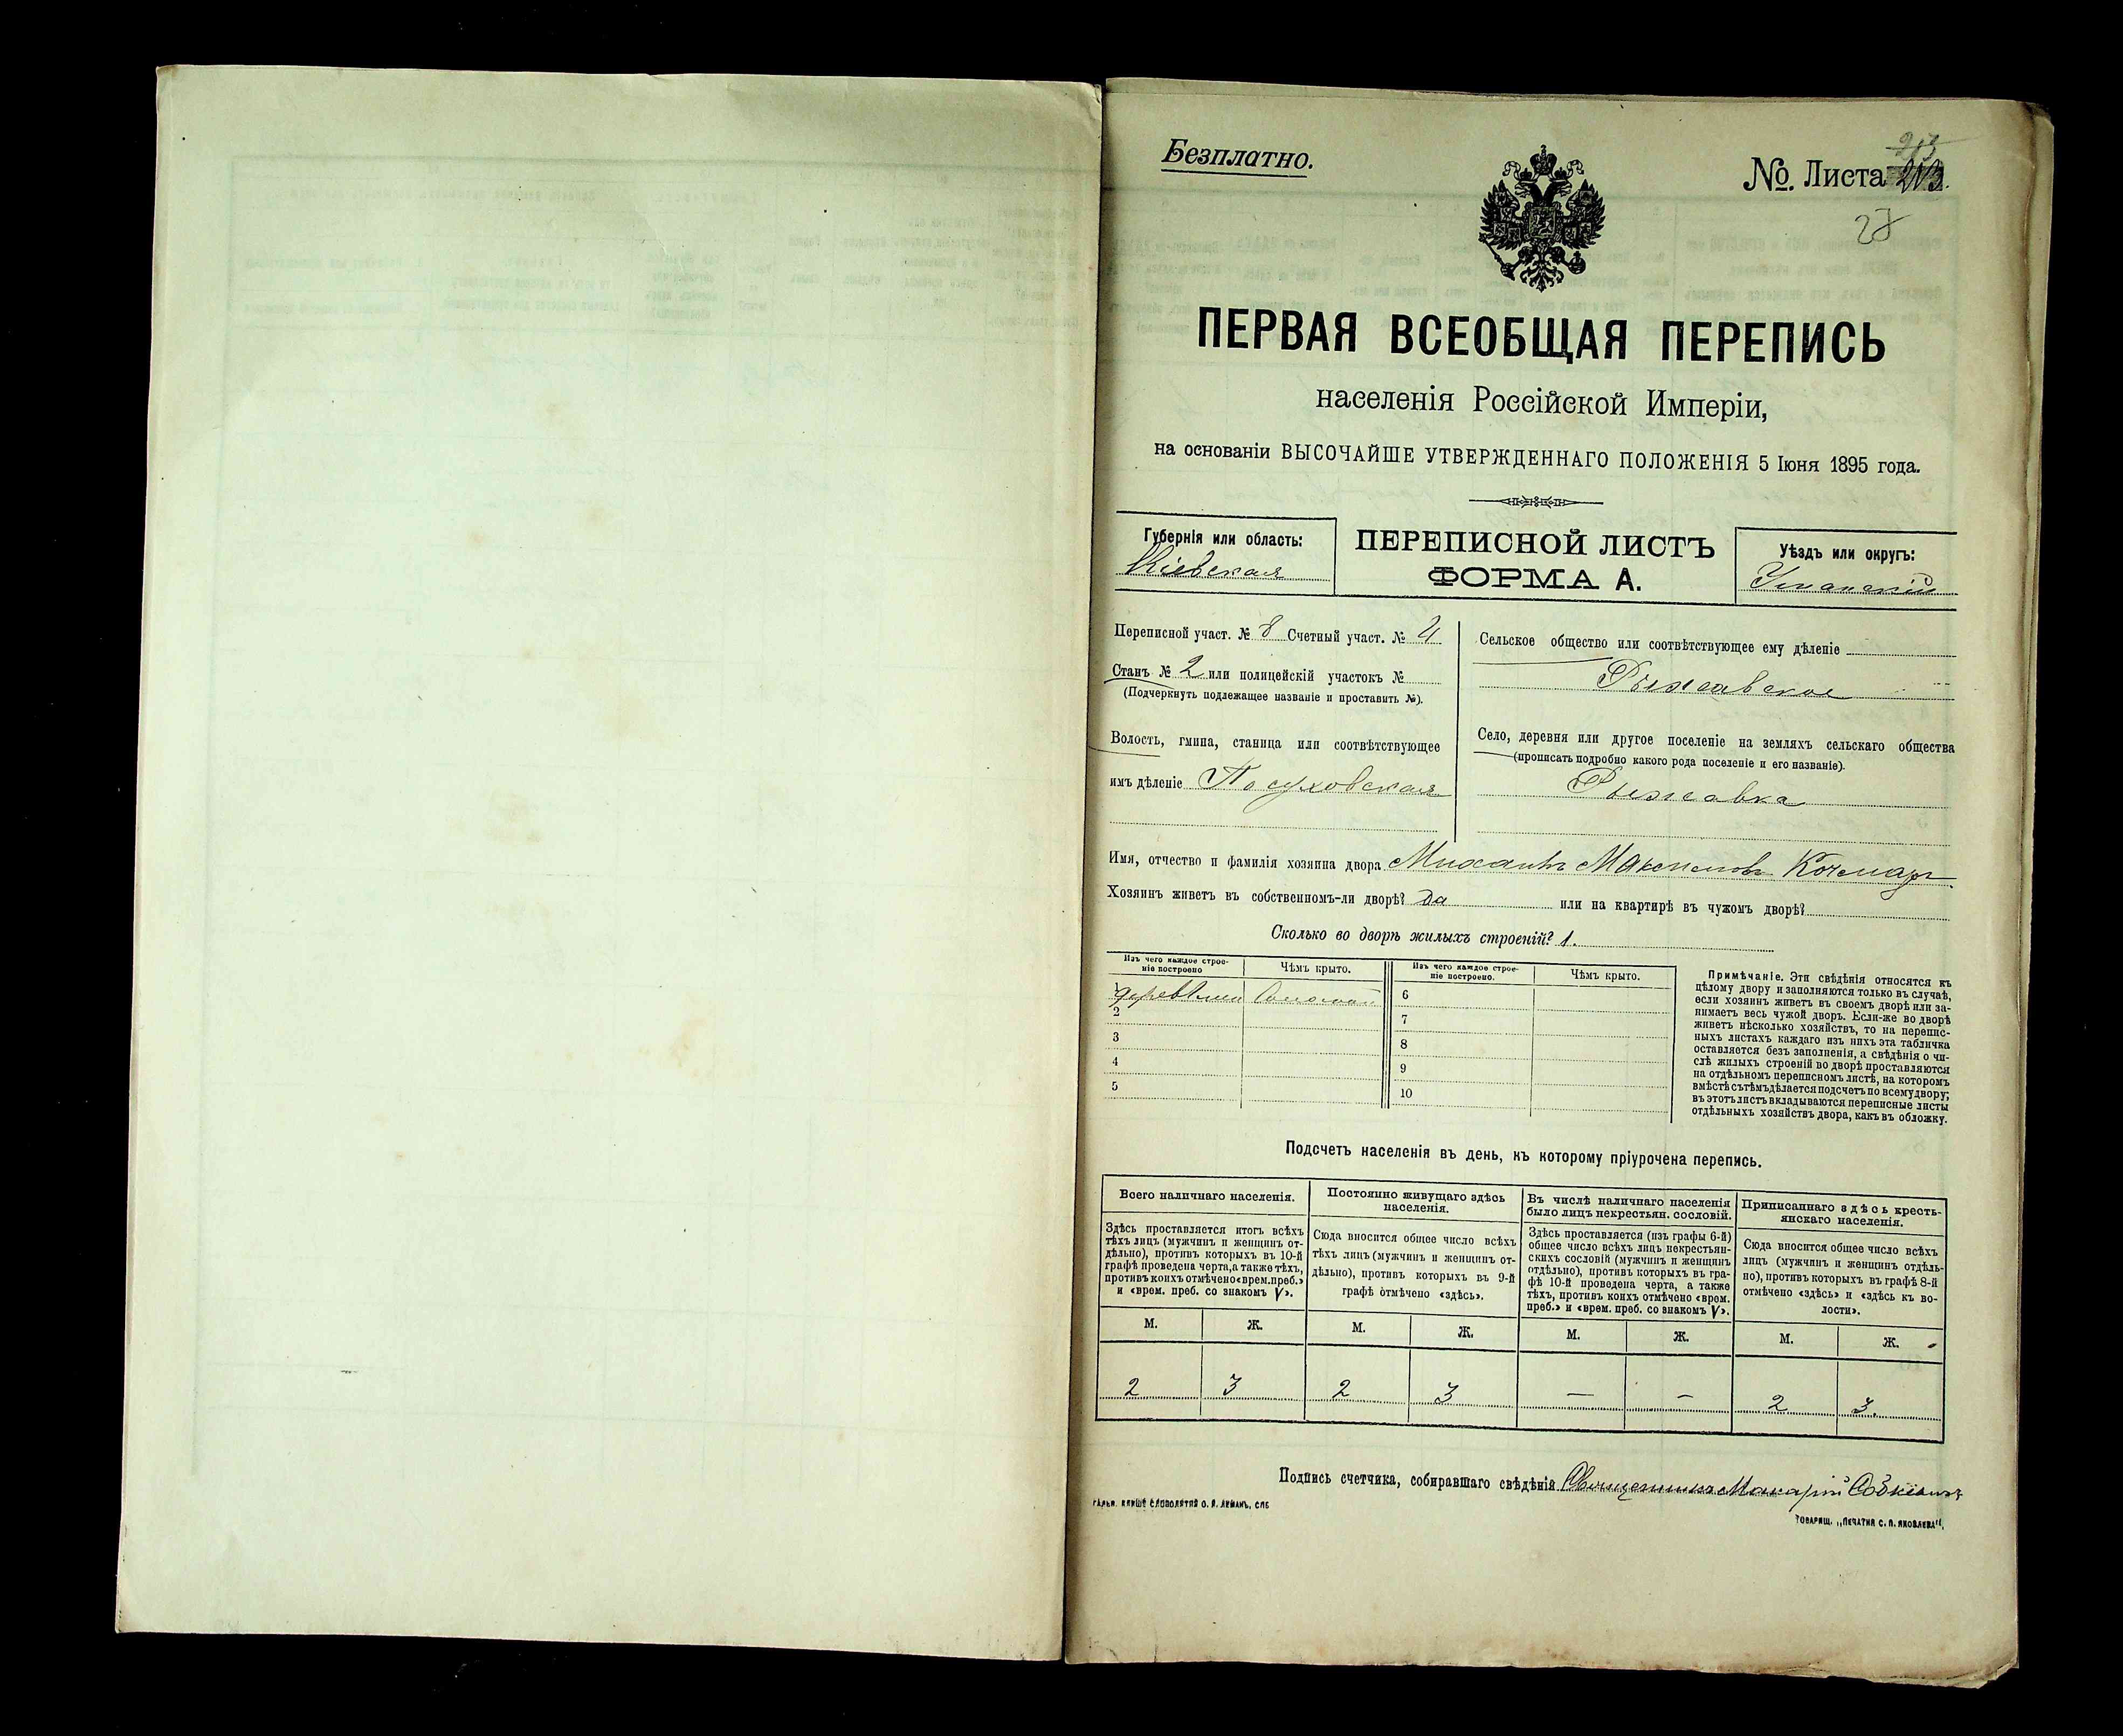 Безплатно.
№. Листа 213.
27
ПЕРВАЯ ВСЕОБЩАЯ ПЕРЕПИСЬ
населенія Россійской Имперіи,
на основаніи ВЫСОЧАЙШЕ УТВЕРЖДЕННАГО ПОЛОЖЕНІЯ 5 Іюня 1895 года.
Губернія или область:
Кіевская
ПЕРЕПИСНОЙ ЛИСТЪ
ФОРМА А.
Уѣздъ или округъ:
Уманскій
Переписной участ. № 8 Счетный участ. № 4
Станъ № 2 или полицейскій участокъ №
(Подчеркнуть подлежащее названіе и проставить №).
Волость, гмина, станица или соотвѣтствующее
имъ дѣленіе Посуховская
Сельское общество или соотвѣтствующее ему дѣленіе
Рыжавское
Село, деревня или другое поселеніе на земляхъ сельскаго общества
(прописать подробно какого рода поселеніе и его названіе).
Рыжавка
Имя, отчество и фамилія хозяина двора Михаилъ Максимовъ Кочмаръ
Хозяинъ живетъ въ собственномъ-ли дворѣ? да или на квартирѣ въ чужомъ дворѣ?
Сколько во дворѣ жилыхъ строеній? 1.
Изъ чего каждое строе-
ніе построено
Чѣмъ крыто.
Изъ чего каждое строе-
ніе построено.
Чѣмъ крыто.
1 Соломой
2
3
4
5
6
7
8
9
10
Примѣчаніе. Эти свѣдѣнія относятся къ
цѣлому двору и заполняются только въ случаѣ,
если хозяинъ живетъ въ своемъ дворѣ или за-
нимаетъ весь чужой дворъ. Если-же во дворѣ
живетъ нѣсколько хозяйствъ, то на перепис-
ныхъ листахъ каждаго изъ нихъ эта табличка
оставляется безъ заполненія, а свѣдѣнія о чи-
слѣ жилыхъ строеній во дворѣ проставляются
на отдѣльномъ переписномъ листѣ, на которомъ
вмѣстѣ съ тѣмъ дѣлается подсчетъ по всему двору;
въ этотъ листъ вкладываются переписные листы
отдѣльныхъ хозяйствъ двора, какъ въ обложку.
Подсчетъ населенія въ день, къ которому пріурочена перепись.
Всего наличнаго населенія.
Здѣсь проставляется итогъ всѣхъ
тѣхъ лицъ (мужчинъ и женщинъ от-
дѣльно), противъ которыхъ въ 10-й
графѣ проведена черта, а также тѣхъ,
противъ коихъ отмѣчено «врем. преб.»
и «врем. преб. со знакомъ V».
Постоянно живущаго здѣсь
населенія.
Сюда вносится общее число всѣхъ
тѣхъ лицъ (мужчинъ и женщинъ от-
дѣльно), противъ которыхъ въ 9-й
графѣ отмѣчено «здѣсь».
Въ числѣ наличнаго населенія
было лицъ некрестьян. сословій.
Здѣсь проставляется (изъ графы 6-й)
общее число всѣхъ лицъ некрестьян-
скихъ сословій (мужчинъ и женщинъ
отдѣльно), противъ которыхъ въ гра-
фѣ 10-й проведена черта, а также
тѣхъ, противъ коихъ отмѣчено «врем.
преб.» и «врем. преб. со знакомъ V».
Приписаннаго здѣсь кресть-
янскаго населенія.
Сюда вносится общее число всѣхъ
лицъ (мужчинъ и женщинъ отдѣль-
но), противъ которыхъ въ графѣ 8-й
отмѣчено «здѣсь» и «здѣсь къ во-
лости».
М. Ж. М. Ж. М. Ж. М. Ж.
2 3 2 3 — — 2 3.
Подпись счетчика, собиравшаго свѣдѣнія Священникъ Макарій Собкевичъ
ГАЛЬВ. КЛИШЕ СЛОВОЛИТНИ О. И. ЛЕМАНЪ, СПБ
ТОВАРИЩ. „ПЕЧАТНЯ С. П. ЯКОВЛЕВА".